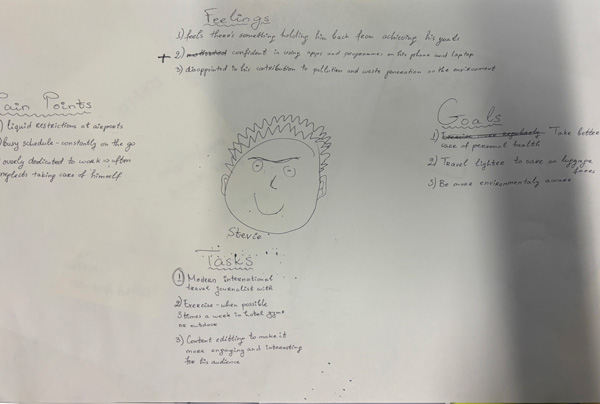 Feelings
1) feels there's something holding him back from achieving his goals
+ 2) motivated confident in using apps and programmes on his phone and laptop
3) disappointed in his contribution to pollution and waste generation on the environment
Pain Points
) liquid restrictions at airports
) busy schedule - constantly on the go
overly dedicated to work => often
neglects taking care of himself
Goals
1) Exercise more regularly Take better
care of personal health
2) Travel lighter to save on luggage
fares
3) Be more environmentaly aware
Stevie
Tasks
1) Modern international
travel journalist with
2) Exercise - when possible
3 times a week in hotel gyms
or outdoor
3) Content editting to make it
more engaging and interesting
for his audience